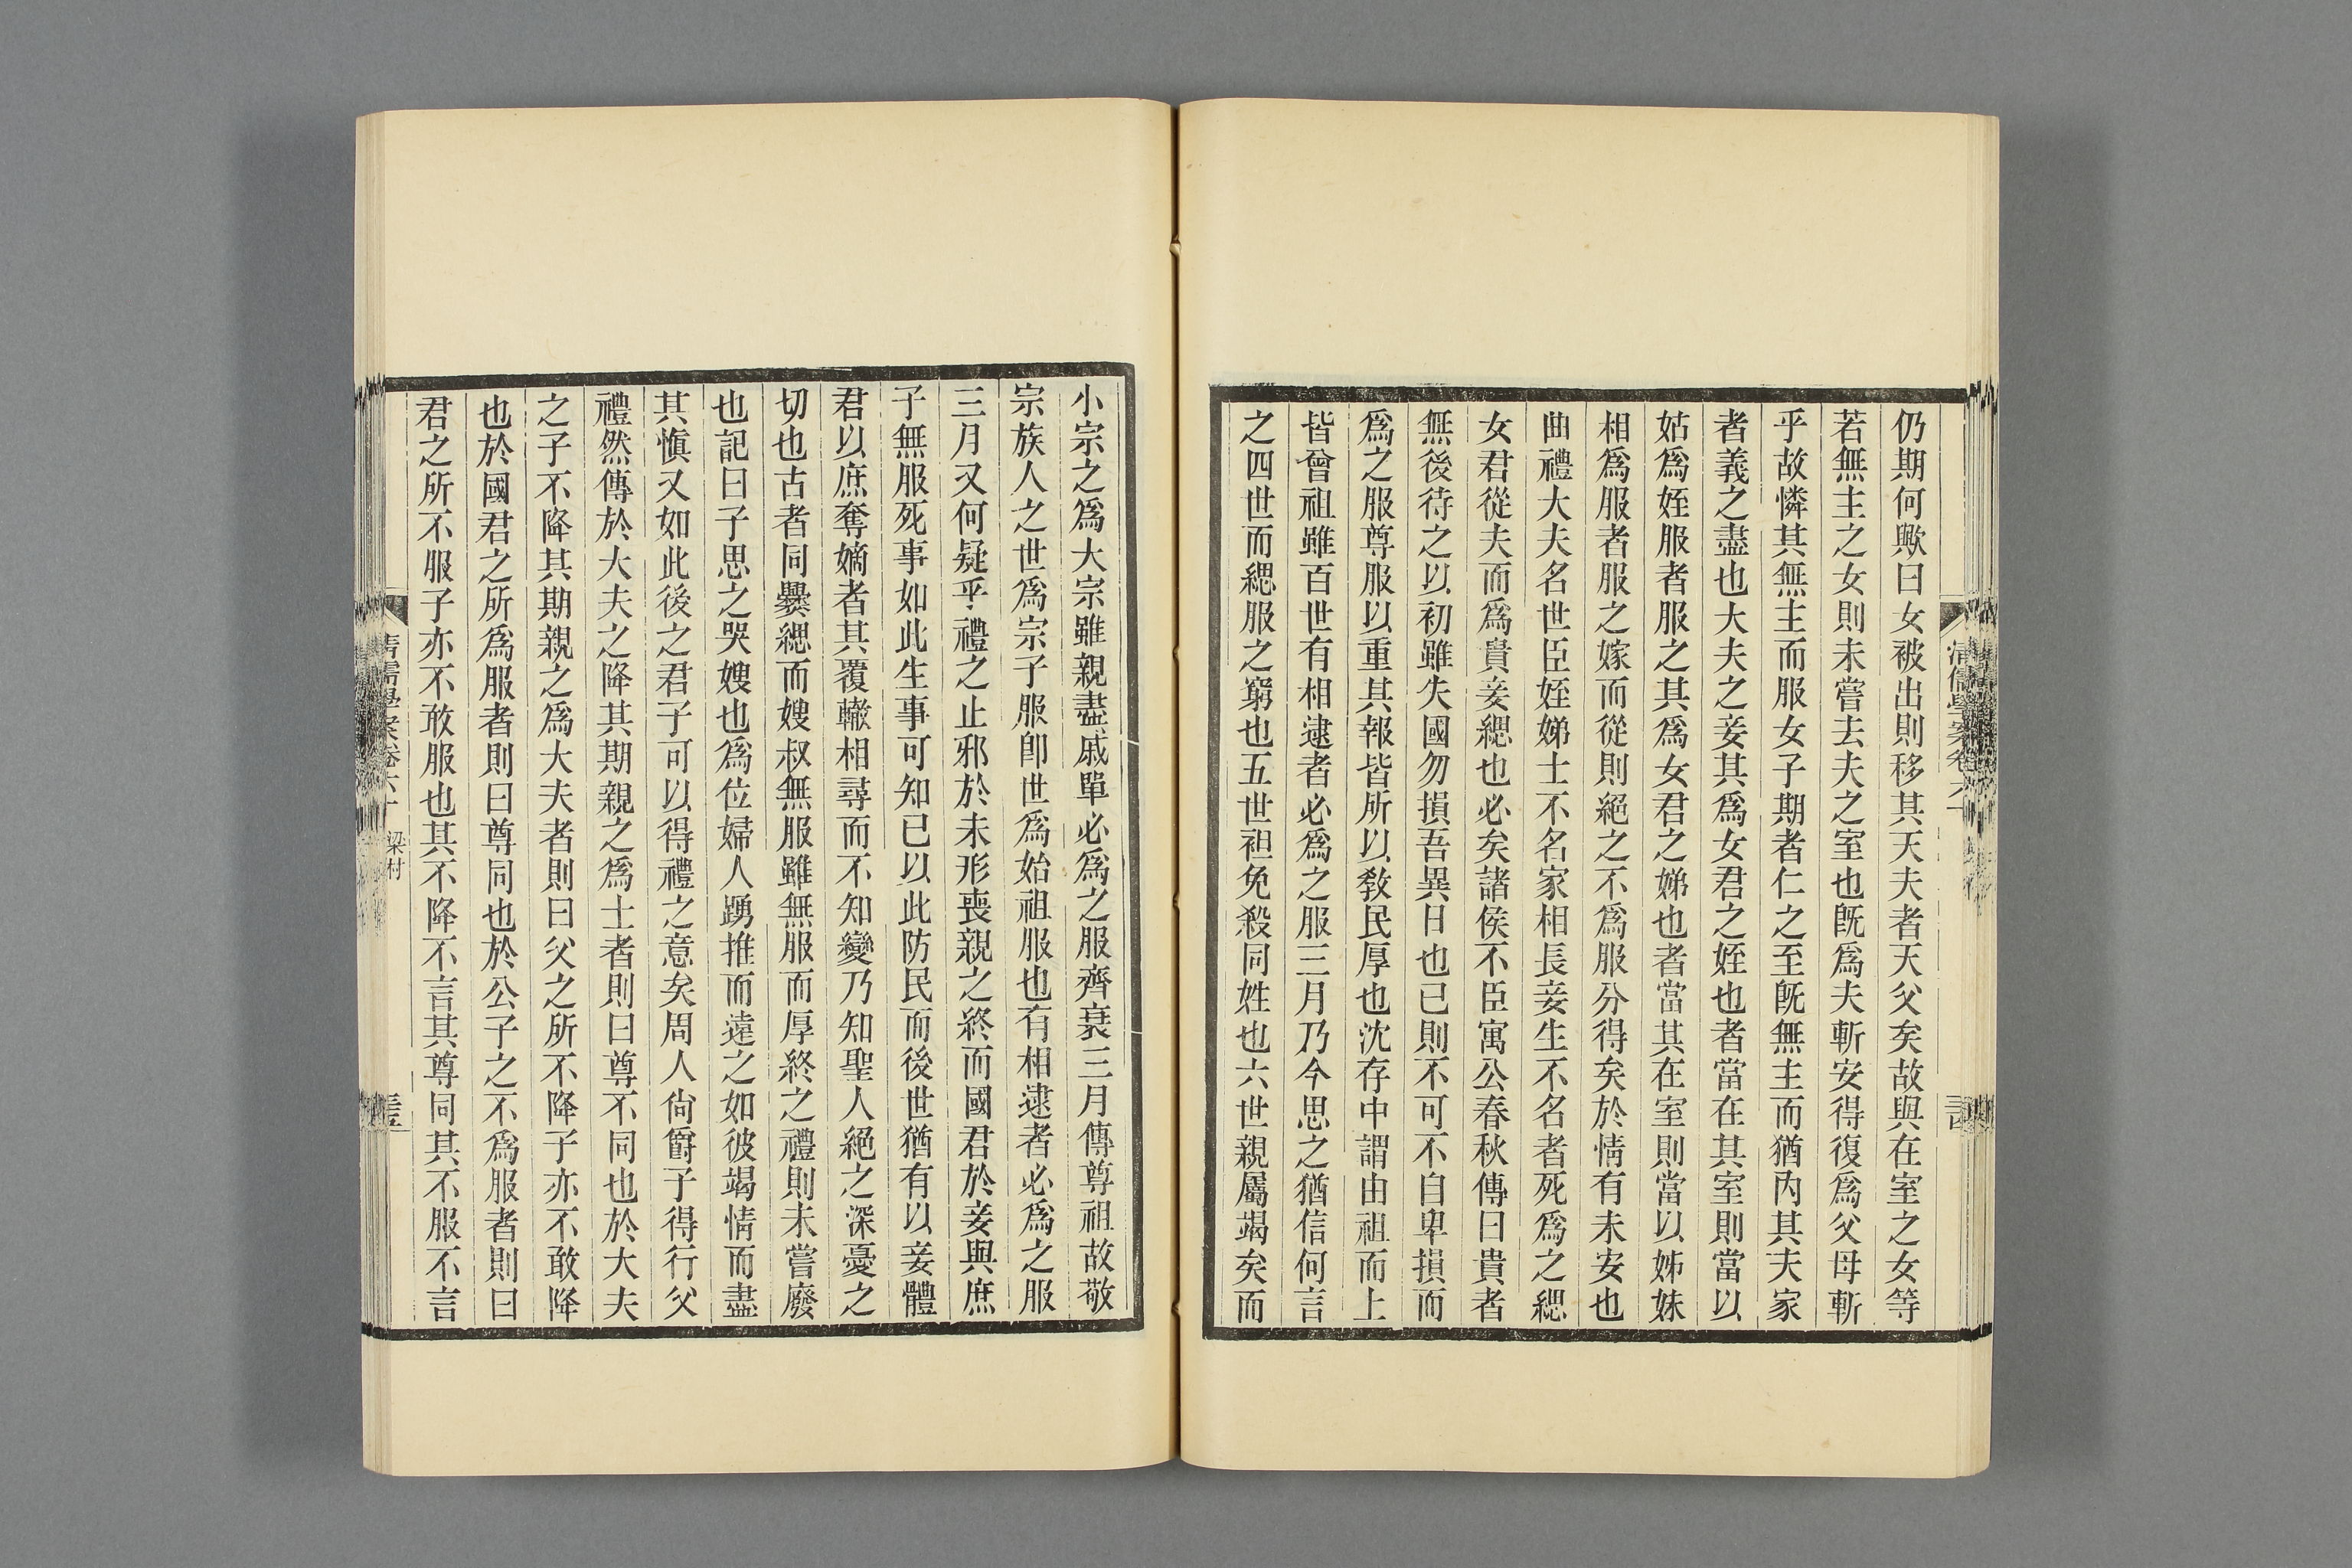 仍期何歟曰女被出則移其天夫者天父矣故與在室之女等
若無主之女則未嘗去夫之室也既爲夫斬安得復爲父母斬
乎故憐其無主而服女子期者仁之至既無主而猶內其夫家
者義之盡也大夫之妾其爲女君之姪也者當在其室則當以
姑爲姪服者服之其爲女君之娣也者當其在室則當以姊妹
相爲服者服之嫁而從則絕之不爲服分得矣於情有未安也
曲禮大夫名世臣姪娣士不名家相長妾生不名者死爲之緦
女君從夫而爲貴妾緦也必矣諸侯不臣寓公春秋傳曰貴者
無後待之以初雖失國勿損吾異日也已則不可不自卑損而
爲之服尊服以重其報皆所以教民厚也沈存中謂由祖而上
皆曾祖雖百世有相逮者必爲之服三月乃今思之猶信何言
之四世而緦服之窮也五世袒免殺同姓也六世親屬竭矣而
清儒學案卷六十
小宗之爲大宗雖親盡戚單必爲之服齊衰三月傳尊祖故敬
宗族人之世爲宗子服卽世爲始祖服也有相逮者必爲之服
三月又何疑乎禮之止邪於未形喪親之終而國君於妾與庶
子無服死事如此生事可知已以此防民而後世猶有以妾體
君以庶奪嫡者其覆轍相尋而不知變乃知聖人絕之深憂之
切也古者同爨緦而嫂叔無服雖無服而厚終之禮則未嘗廢
也記曰子思之哭嫂也爲位婦人踴推而遠之如彼竭情而盡
其愼又如此後之君子可以得禮之意矣周人尙爵子得行父
禮然傳於大夫之降其期親之爲士者則曰尊不同也於大夫
之子不降其期親之爲大夫者則曰父之所不降子亦不敢降
也於國君之所爲服者則曰尊同也於公子之不爲服者則曰
君之所不服子亦不敢服也其不降不言其尊同其不服不言
清儒學案卷六十 梁村